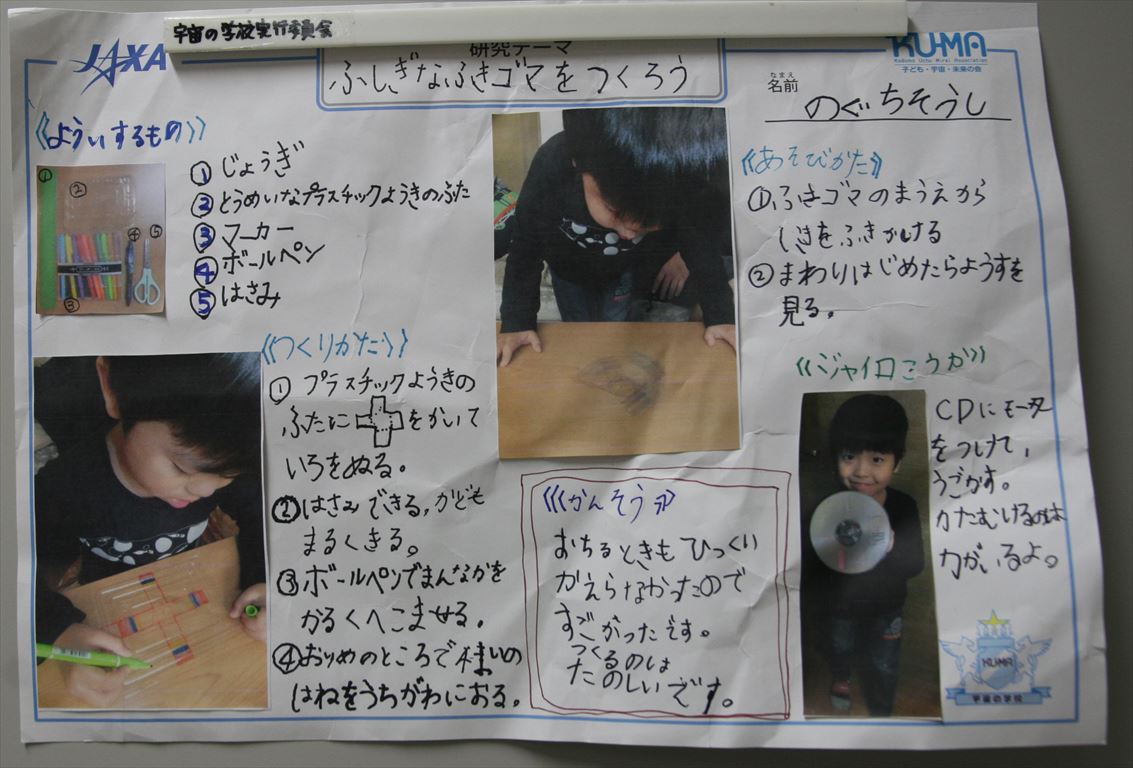 宇宙の学校実行委員会
JAXA
研究テーマ
ふしぎなふきゴマをつくろう
KU-MA
Kodomo Uchu Mirai Association
子ども・宇宙・未来の会
なまえ
名前
のぐちそうし
《よういするもの》
① じょうぎ
② とうめいなプラスチックようきのふた
③ マーカー
④ ボールペン
⑤ はさみ
①
②
③
④
⑤
《つくりかた》
① プラスチックようきの
ふたに
をかいて
いろをぬる。
② はさみできる。かども
まるくきる。
③ ボールペンでまんなかを
かるくへこませる。
④ おりめのところで4まいの
はねをうちがわにおる。
《あそびかた》
① ふきゴマのまうえから
いきをふきかける
② まわりはじめたらようすを
見る。
《かんそう》
おちるときもひっくり
かえらなかったので
すごかったです。
つくるのは
たのしいです。
《ジャイロこうか》
CDにモーター
をつけて、
うごかす。
かたむけるのは
力がいるよ。
KU-MA
宇宙の学校